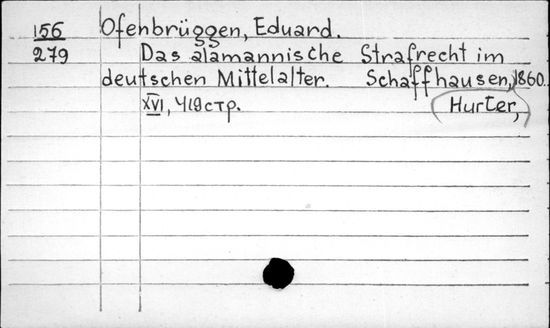 156 Ofenbrüggen, Eduard.
279 Das alamannische Strafrecht im
deutschen Mittelalter. Schaffhausen, 1860.
XVI, 419 стр. Hurter,